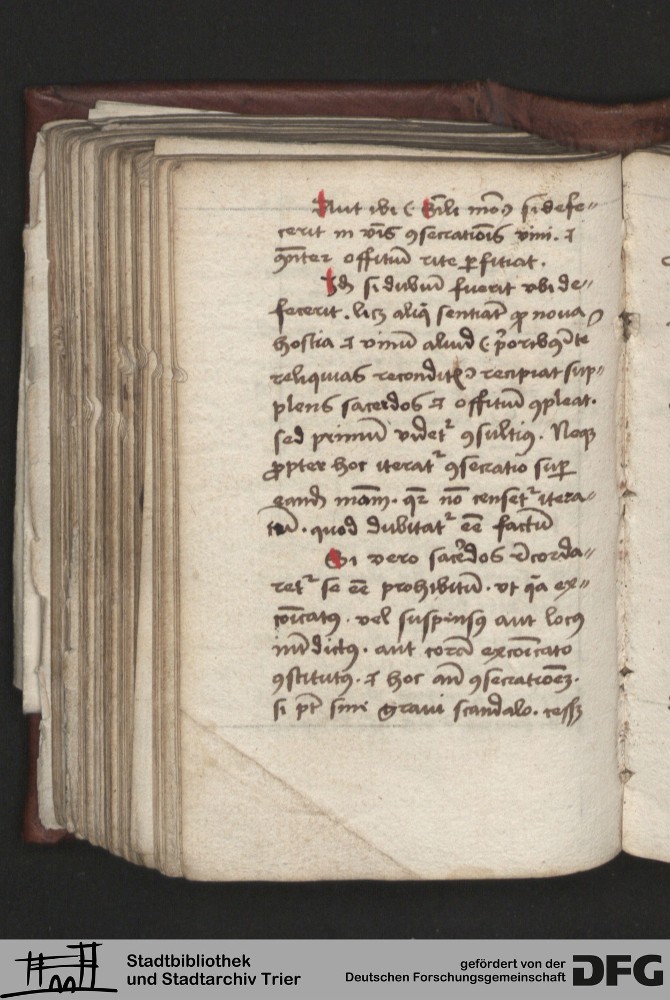 Aut ibi ē Sīli mō si defe=
cerit in v̄is ꝯsecratiōis vini. ⁊
ꝗ̄nter offitiū rite ꝑfitiat.
Id si dubiū fuerit vbi de=
fecerit. licꝫ aliq̄ sentiāt ꝙ noua
hostia ⁊ vinū aliud
reliquias recondit recipiat sup=
plens sacerdos ⁊ offitiū ꝯpleat.
sed primū videt᷑ ꝯsultiꝰ. Neqꝫ
ꝓpter hoc iterat᷑ ꝯsecratio suꝑ
eandē mām. qꝛ nō censet᷑ itera=
tū. quod dubitat᷑ eē factū
Si vero sac̄dos r̄corda=
ret᷑ se eē prohibitū. vt q̄a ex=
cōicatꝰ. vel suspensꝰ aut locꝰ
int̄dictꝰ. aut corā excōicato
ꝯstitutꝰ. ⁊ hoc an̄ ꝯsecrationēꝫ.
si pt̄ sine graui scandalo. cessꝫ
Stadtbibliothek
und Stadtarchiv Trier
gefördert von der
Deutschen Forschungsgemeinschaft
DFG